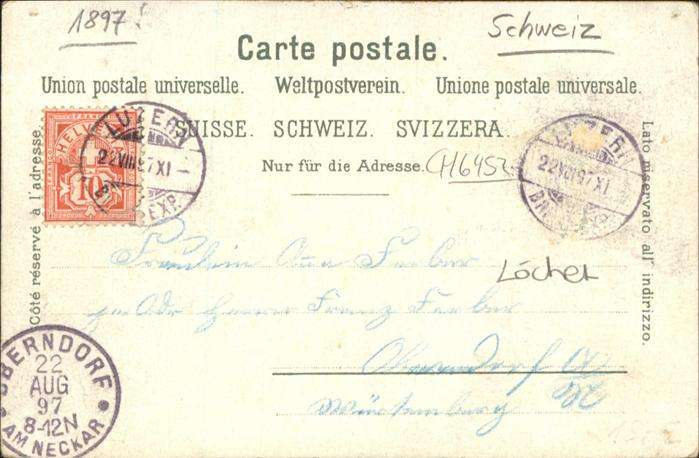 1897!
Schweiz
Carte postale.
Union postale universelle. Weltpostverein. Unione postale universale.
SUISSE. SCHWEIZ. SVIZZERA.
Nur für die Adresse. CH6452
Côté réservé à l'adresse.
Lato riservato all' indirizzo.
HELVETIA
10
LUZERN
22.VIII.97.XI-
BRF. EXP.
LUZERN
22.VIII.97.XI-
Löcher
Fräulein Ferber
Herrn Franz Ferber
Oberndorf a/
N
Württemberg
OBERNDORF
22
AUG
97
8-12N
AM NECKAR